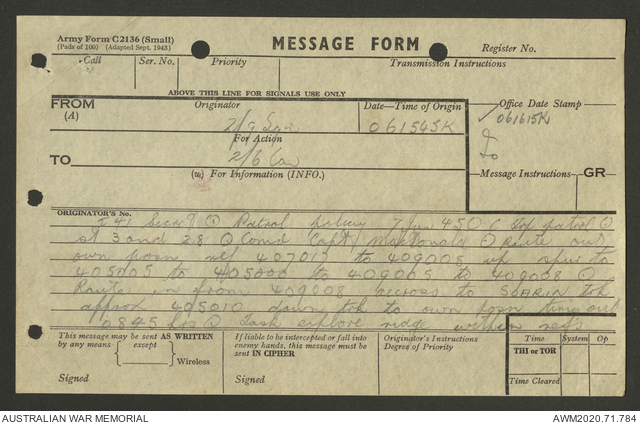 Army Form C2136 (Small)
(Pads of 100) (Adapted Sept. 1943)
MESSAGE FORM
Register No.
Call
Ser. No.
Priority
Transmission Instructions
ABOVE THIS LINE FOR SIGNALS USE ONLY
FROM
(A)
Originator
Date—Time of Origin
Office Date Stamp
2/9
061545K
061615K
For Action
TO
2/6 Cav
(w) For Information (INFO.)
Message Instructions
GR
ORIGINATOR'S No.
I 41 Secret Patrol policy 7 Jun 45 patrol
at 3 and 28 Comd Capt MacDonald Route out
own posn ref 407013 to 409008 up spur to
405005 to 405000 to 409005 to 409008
Route in from 409008 across to SOARIN tck
approx 405010 down tck to own posn time out
0845 hrs Task explore ridge within refs
This message may be sent AS WRITTEN
by any means except
Wireless
Signed
If liable to be intercepted or fall into
enemy hands, this message must be
sent IN CIPHER
Signed
Originator's Instructions
Degree of Priority
Time
System
Op
THI or TOR
Time Cleared
AUSTRALIAN WAR MEMORIAL
AWM2020.71.784